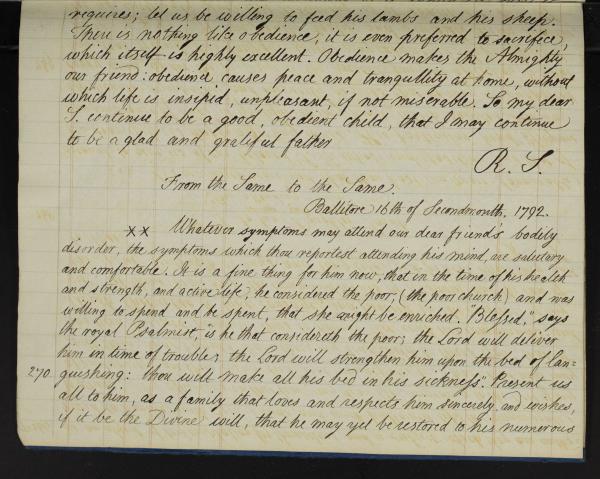 requires; let us be willing to feed his lambs and his sheep.
There is nothing like obedience, it is even preferred to sacrifice,
which itself is highly excellent. Obedience makes the Almighty
our friend: obedience causes peace and tranquillity at home, without
which life is insipid, unpleasant, if not miserable. So my dear
S. continue to be a good, obedient child, that I may continue
to be a glad and grateful father
R. S.
From the Same to the Same.
Ballitore 16th of Secondmonth, 1792.
xx Whatever symptoms may attend our dear friend's bodily
disorder, the symptoms which thou reportest attending his mind, are salutary
and comfortable. It is a fine thing for him now, that in the time of his health
and strength, and active life, he considered the poor, (the poor church) and was
willing to spend and be spent, that she might be enriched. "Blessed," says
the royal Psalmist, "is he that considereth the poor; the Lord will deliver
him in time of trouble; the Lord will strengthen him upon the bed of lan=
270. guishing: thou wilt make all his bed in his sickness". Present us
all to him, as a family that loves and respects him sincerely, and wishes,
if it be the Divine will, that he may yet be restored to his numerous